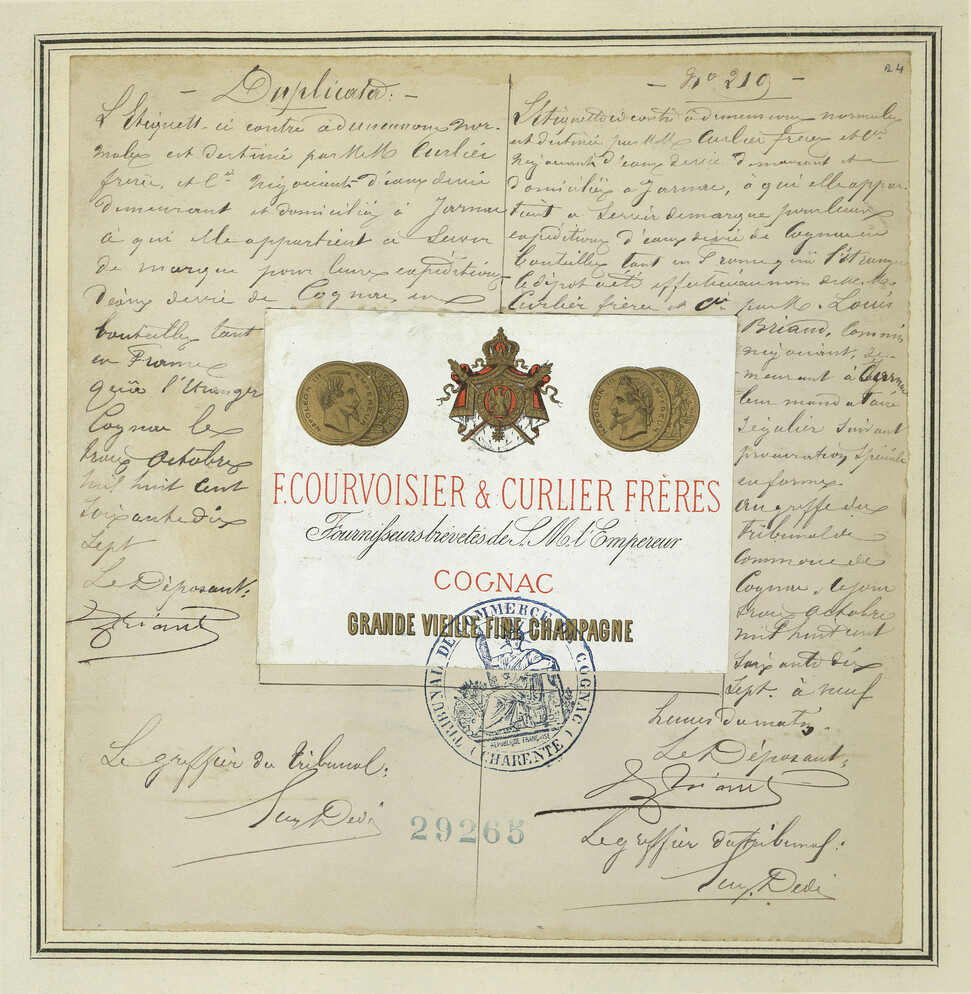 24
— Duplicata. —
L'Etiquette ci contre à dimensions nor-
males est destinée par MM Curlier
frères, et Cie Négociants d'eaux devie
demeurant et domiciliés à Jarnac
à qui elle appartient à Servir
de marque pour leurs expéditions
d'eaux devie de Cognac en
bouteilles tant
en France
qu'à l'Etranger
Cognac le
trois Octobre
mil huit cent
Soixante dix
Sept
Le Déposant:
Briand
Le greffier du tribunal:
— No 219 —
L'Etiquette ci contre à dimensions normales
est destinée par MM. Curlier frères et Cie
Négociants d'eaux devie demeurant et
domiciliés à Jarnac, à qui elle appar-
tient à Servir de marque pour leurs
expéditions d'eaux devie de Cognac en
bouteilles tant en France qu'à l'Etranger
le dépôt a été effectué au nom de MM.
Curlier frères et Cie par M. Louis
Briand, Commis
négociant, de-
meurant à Jarnac
leur mandataire
régulier suivant
procuration spéciale
en forme.
au greffe du
Tribunal de
Commerce de
Cognac, le jour
trois Octobre
mil huit cent
Soixante dix
Sept. à neuf
heures du matin.
Le Déposant:
Briand
Le greffier du tribunal:
NAPOLEON III EMPEREUR
NAPOLEON III EMPEREUR
F. COURVOISIER & CURLIER FRÈRES
Fournisseurs brévetés de S. M. l'Empereur
COGNAC
GRANDE VIEILLE FINE CHAMPAGNE
TRIBUNAL DE COMMERCE DE COGNAC
REPUBLIQUE FRANÇAISE
(CHARENTE)
29265